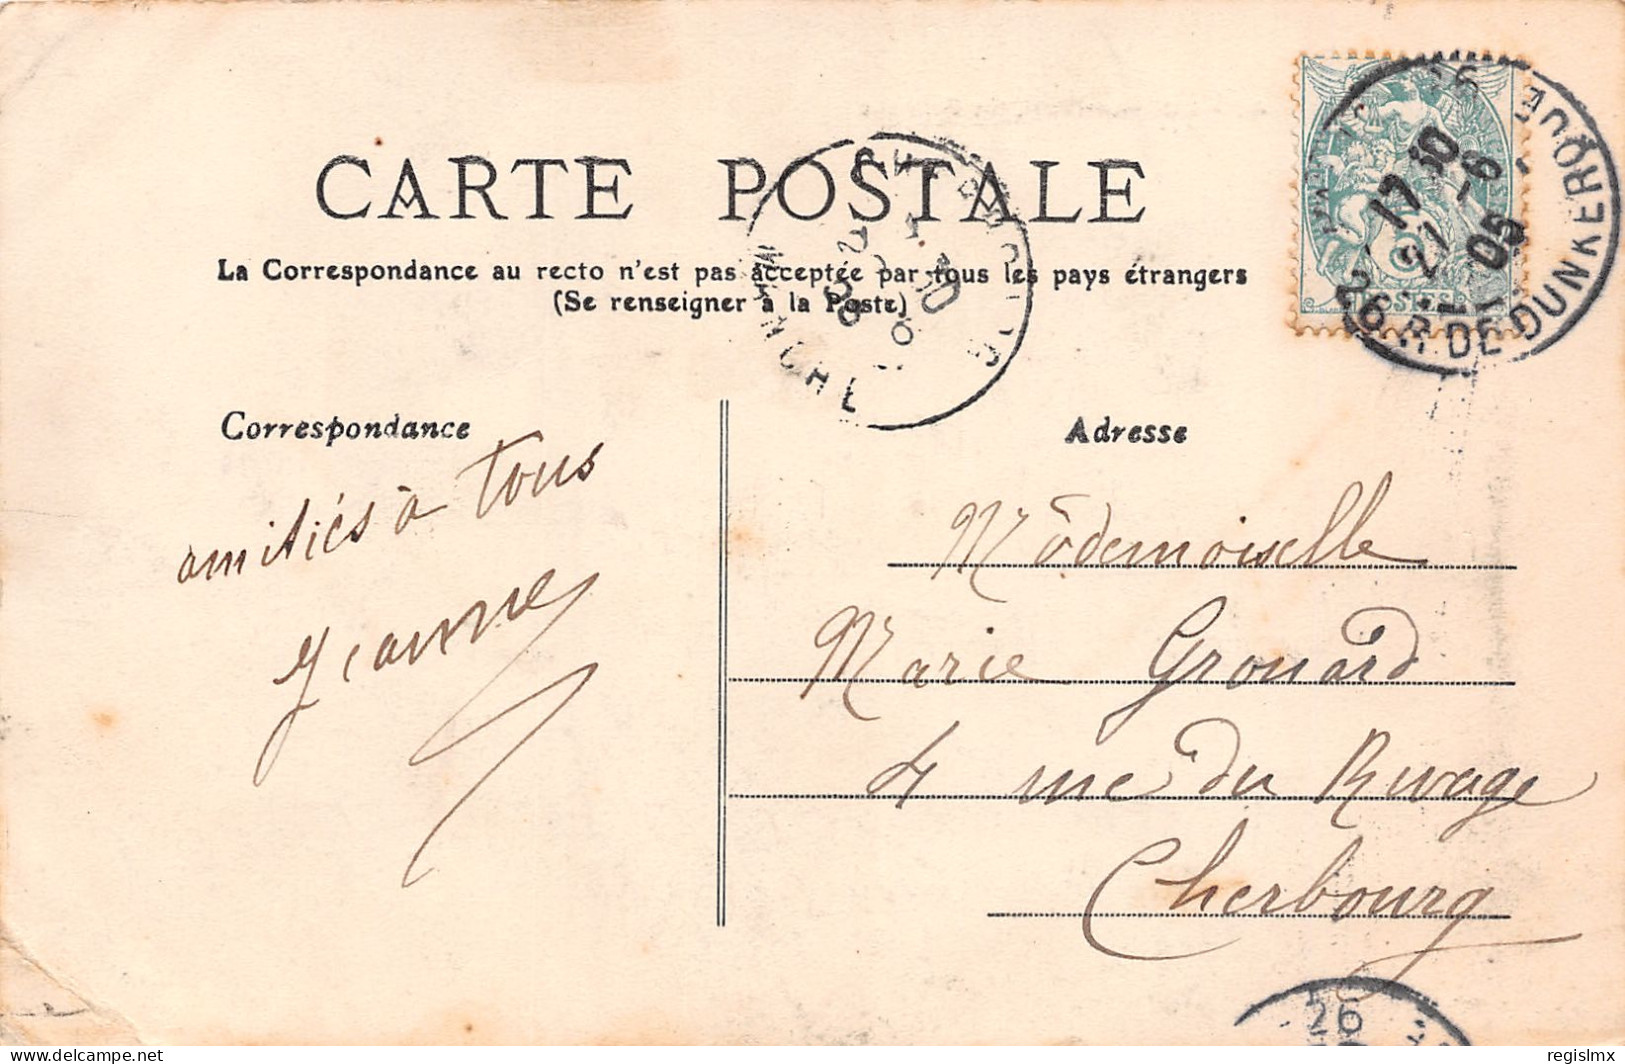 CARTE POSTALE
La Correspondance au recto n'est pas acceptée par tous les pays étrangers
(Se renseigner à la Poste)
CHERBOURG
MANCHE
POSTES
17 30
21 -6
05
26 R. DE DUNKERQUE
Correspondance
amitiés à tous
Jeanne
Adresse
Mademoiselle
Marie Grouard
4 rue du Rivage
Cherbourg
26
www.delcampe.net
regislmx